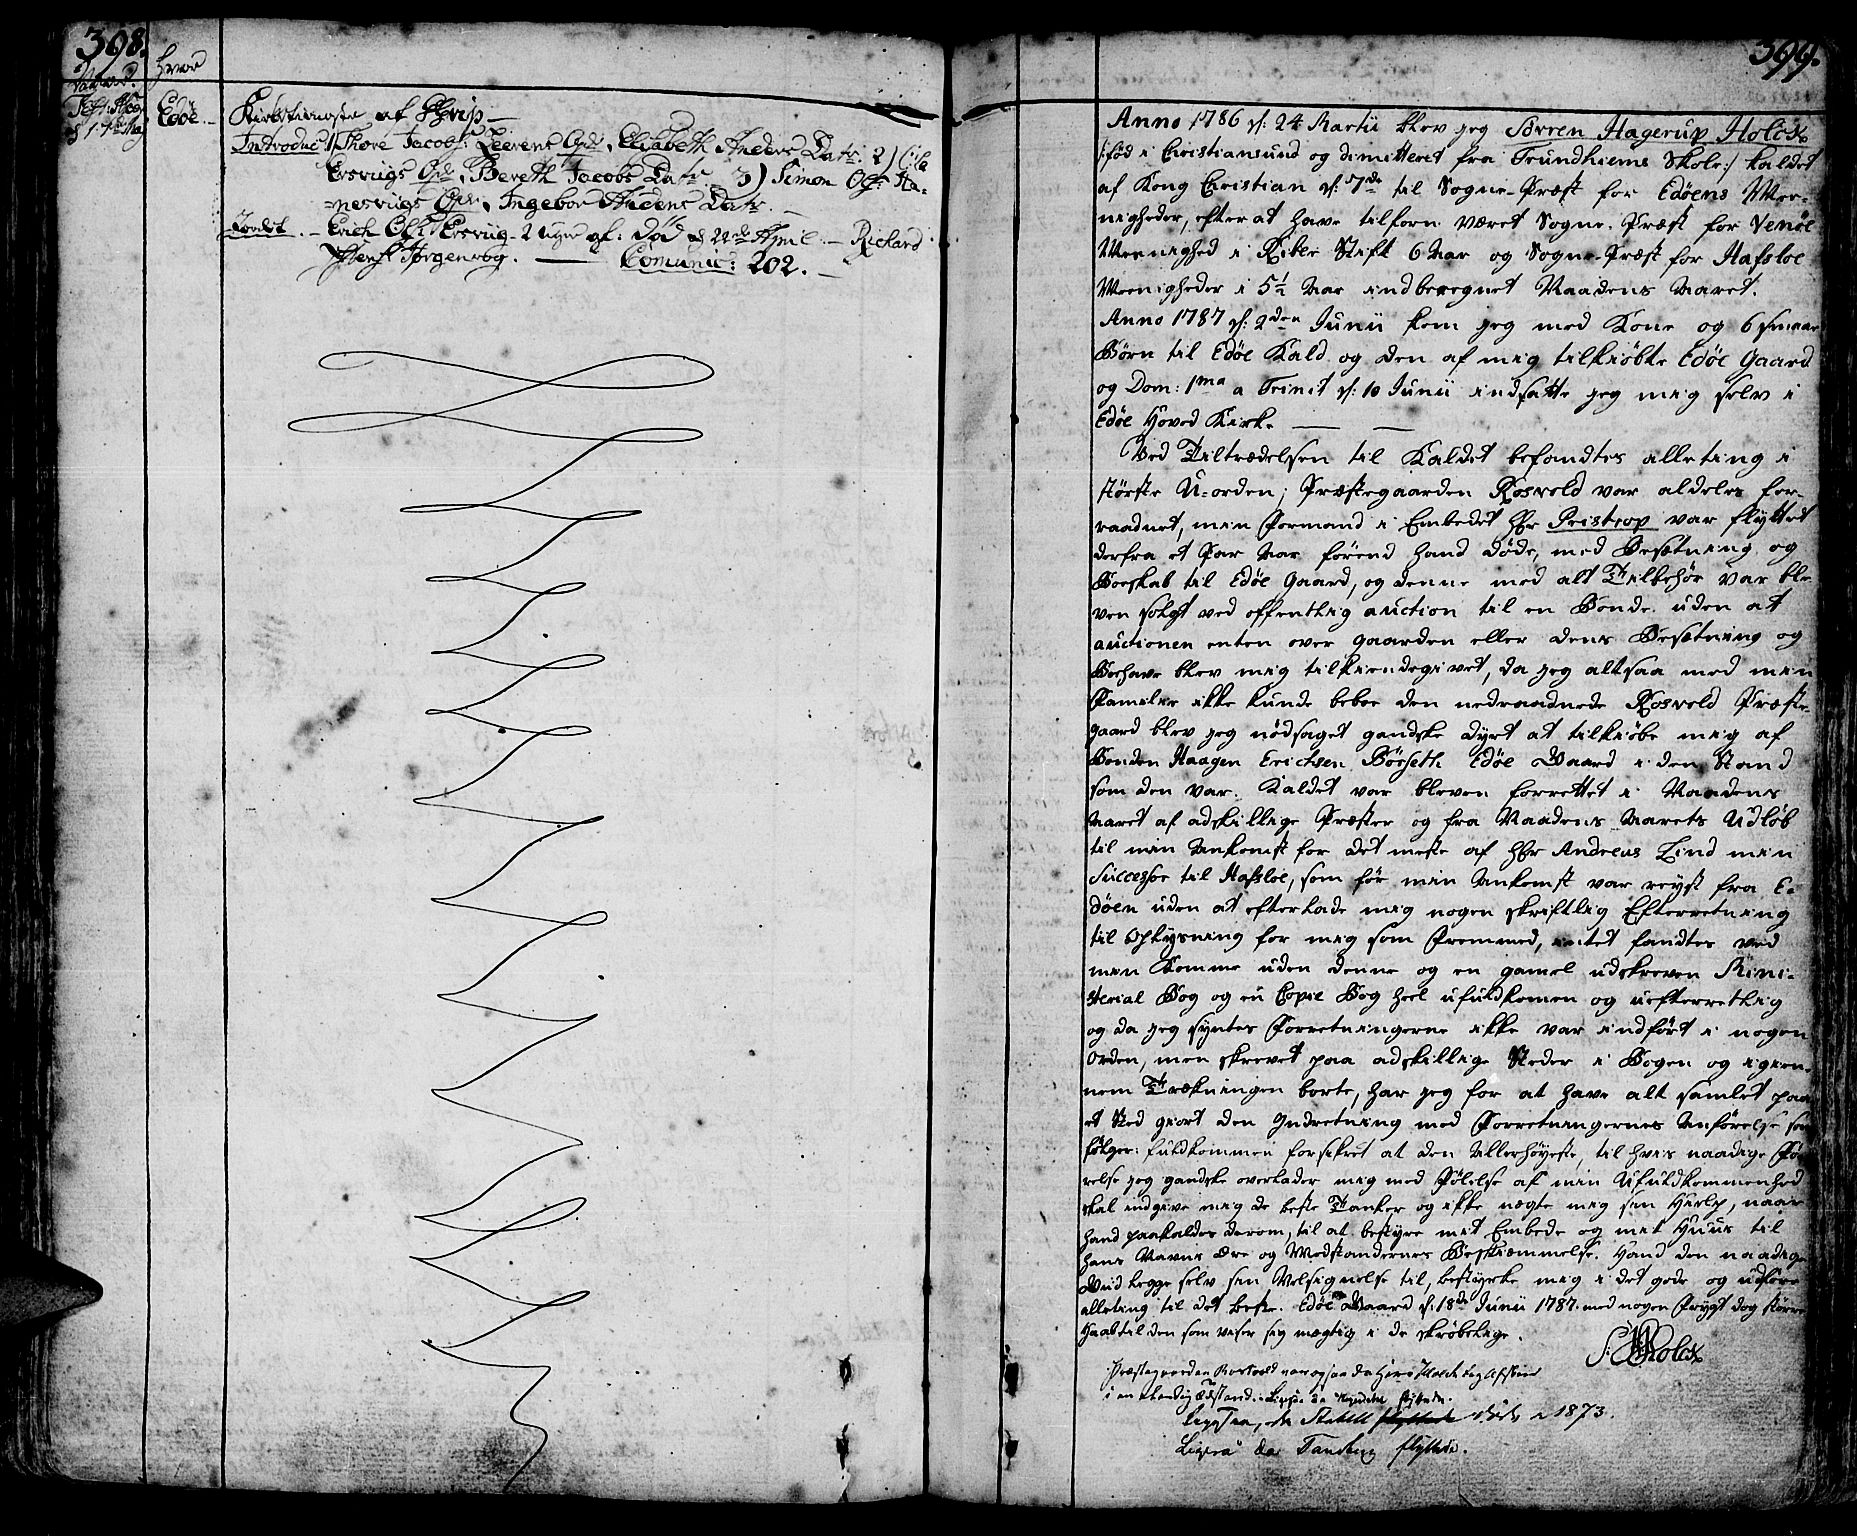 398.
Naar.
hvor
Edöe.
Kirketieniste af Thrup
Introduc: 1) Thore Jacobs: Leerens Qvde, Elisabeth Anders Datr. 2) Ole
Ersviigs Qvde, Bereth Jacobs Datr. 3) Simon Ols: Ha-
nesviigs Qvde, Ingebor Anders Datr.
Jordet. Erich Ols: Ersviig 2 uger gl: död d 22de April. Richard
Jörgenvog. Comunic: 202.
399.
Anno 1786 d: 24 Martii blev jeg Sörren Hagerup Holck
/:föd i Christiansund og dimitteret fra Trundhiems Skole:/ kaldet
af Kong Christian d: 7de til Sogne-Præst for Edöens Me-
nigheder, efter at have tilforn været Sogne-Præst for Venöe
Meenighed i Riber Stift 6 Aar og Sogne-Præst for Hafsloe
Meenigheder i 5½ Aar indberegnet Naadens Aaret.
Anno 1787 d: 2den Junii kom jeg med Kone og 6 smaae
Börn til Edöe Kald og den af mig tilkiöbte Edöe Gaard
og Dom: 1ma a Trinit d: 10 Junii indsatte jeg mig selv i
Edöe Hoved Kirke.
Ved Tiltrædelsen til Kaldet befandtes alleting i
störste U-orden; Præstegaarden Rosvold var aldeles for-
raadnet, min Formand i Embedet Hr Pristrop var flyttet
derfra et Par Aar förend hand döde, med Besætning og
Boeskab til Edöe Gaard, og denne med alt Tilbehör var ble-
ven solgt ved offentlig auction til en Bonde uden at
auctionen enten over gaarden eller dens Besætning og
Boehave blev mig tilkiendegivet, da jeg altsaa med min
Familie ikke kunde beboe den nedraadnede Rosvold Præste-
gaard blev jeg nödsaget gandske dyrt at tilkiöbe mig af
Bonden Haagen Erichsen Börseth Edöe Gaard i den Stand
som den var. Kaldet var bleven forrettet i Naadens
Aaret af adskillige Præster og fra Naadens Aarets Udlöb
til min Ankomst for det meste af Hr Andreas Lind min
Successor til Hafsloe, som för min Ankomst var reyst fra E-
döen uden at efterlade mig nogen skriftlig Efterretning
til Oplysning for mig som Fremmed, intet fandtes ved
min Komme uden denne og en gamel udskreven Mini-
sterial Bog og en Copie Bog heel ufuldkomen og uefterretlig
og da jeg syntes Forretningerne ikke var indfört i nogen
Orden, men skrevet paa adskillige Steder i Bogen og igien-
nem Trækningen borte, har jeg for at have alt samlet paa
et Sted giort den Indretning med Forretningernes Anförelse som
fölger: fuldkommen forsikret at den Allerhöyeste, til hvis naadige Fö-
relse jeg gandske overlader mig med Fölelse af min Ufuldkommenhed
skal indgive mig de beste Tanker og ikke nægte mig sin Hielp, naar
hand paakaldes derom, til at bestyre mit Embede og mit Huus til
hans Navns Ære og Modstandernes Beskiæmmelse. Hand den naadige
Gud legge selv sin Velsignelse til, bestyrke mig i det gode og udföre
alleting til det beste. Edöe Gaard d: 18de Junii 1787. med nogen Frygt dog större
Haab til den som viser sig mægtig i de skröbelige.
S: H Holck
Præstegaarden Rosvold var ogsaa da Herr Holck
i en elendig Tilstand
1873.
flyttede.